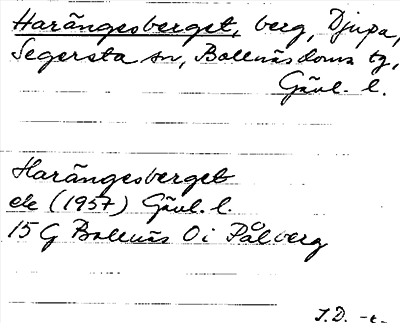 Harängesberget, berg, Djupa,
Segersta sn, Bollnäs doms tg,
Gävl. l.
Harängesberget
ek (1957) Gävl. l.
15 G Bollnäs 0 i Pålberg